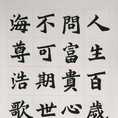 人生百歲
問富貴心
不可期世
海尊浩歌